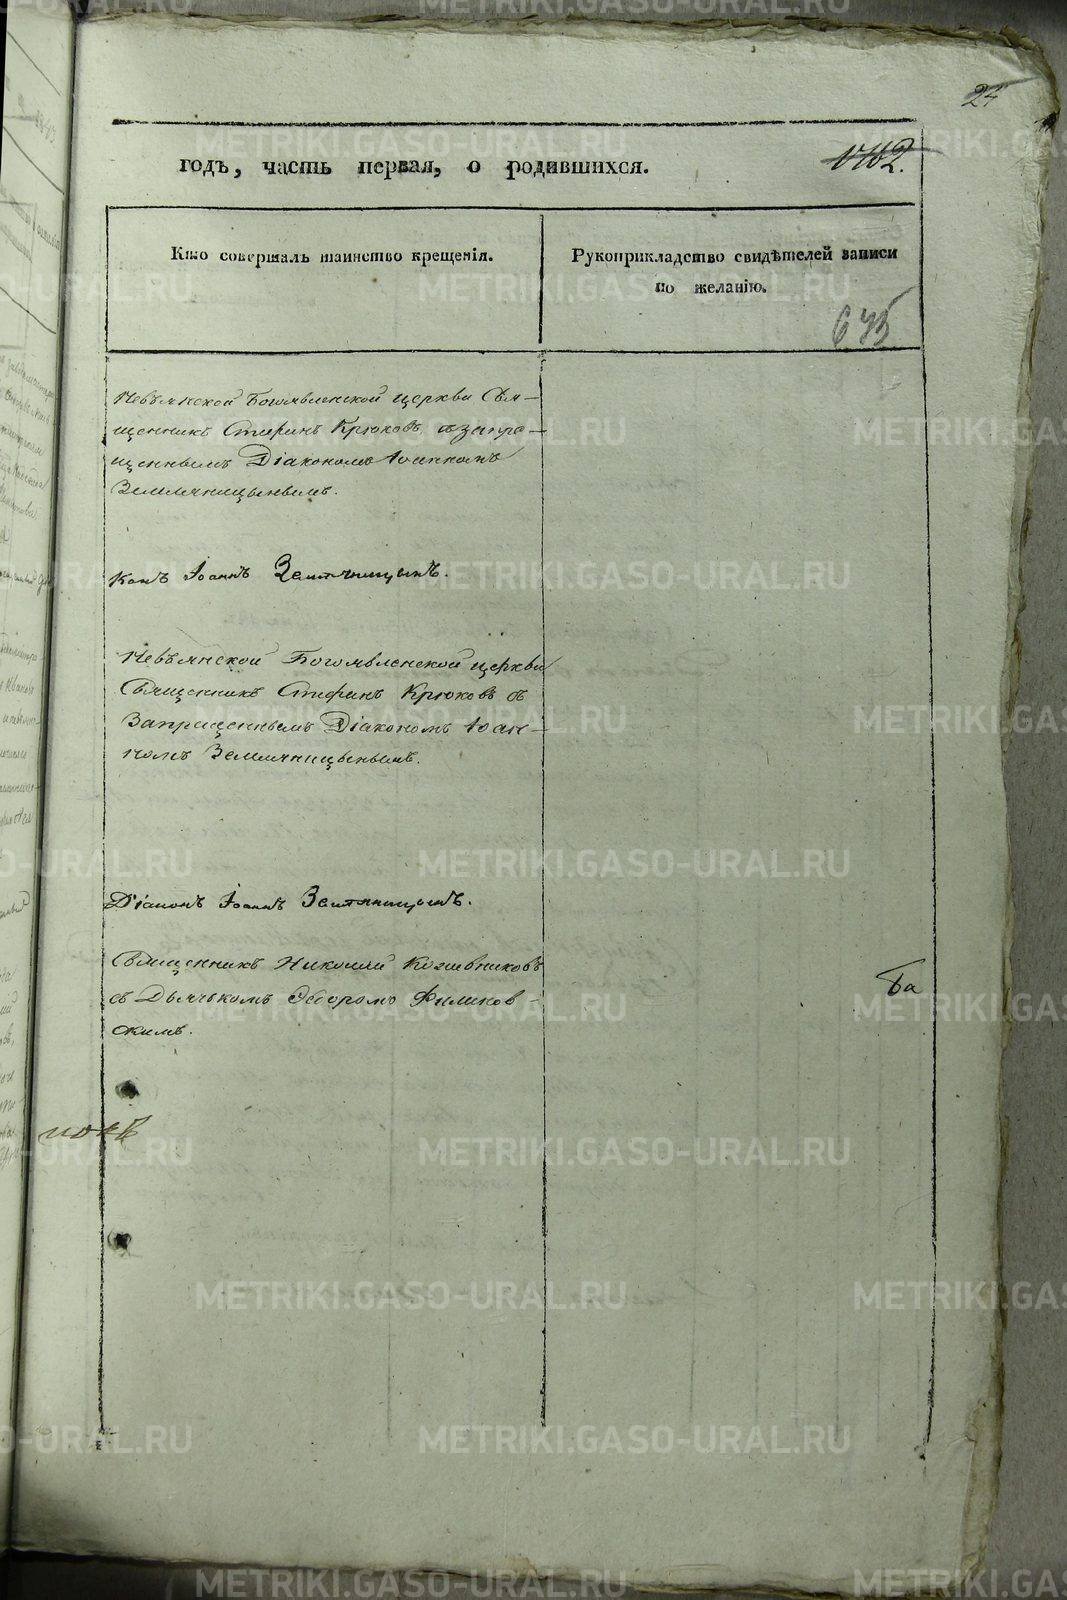 24
годъ, часть первая, о родившихся.
Кто совершалъ таинство крещенія.
Рукоприкладство свидѣтелей записи
по желанію.
Невьянской Богоявленской церкви Свя-
щенникъ Стефанъ Крюковъ съ запре-
щеннымъ Діакономъ Іоанномъ
Землячницынымъ.
Іоаннъ Земляницынъ.
Невьянской Богоявленской церкви
Священникъ Стефанъ Крюковъ съ
Запрещеннымъ Діакономъ Іоан-
номъ Землячницынымъ.
Діаконъ Іоаннъ Земляницынъ.
Священникъ Николай Кожевниковъ
съ Дьячкомъ Ѳедоромъ
скимъ.
METRIKI.GASO-URAL.RU